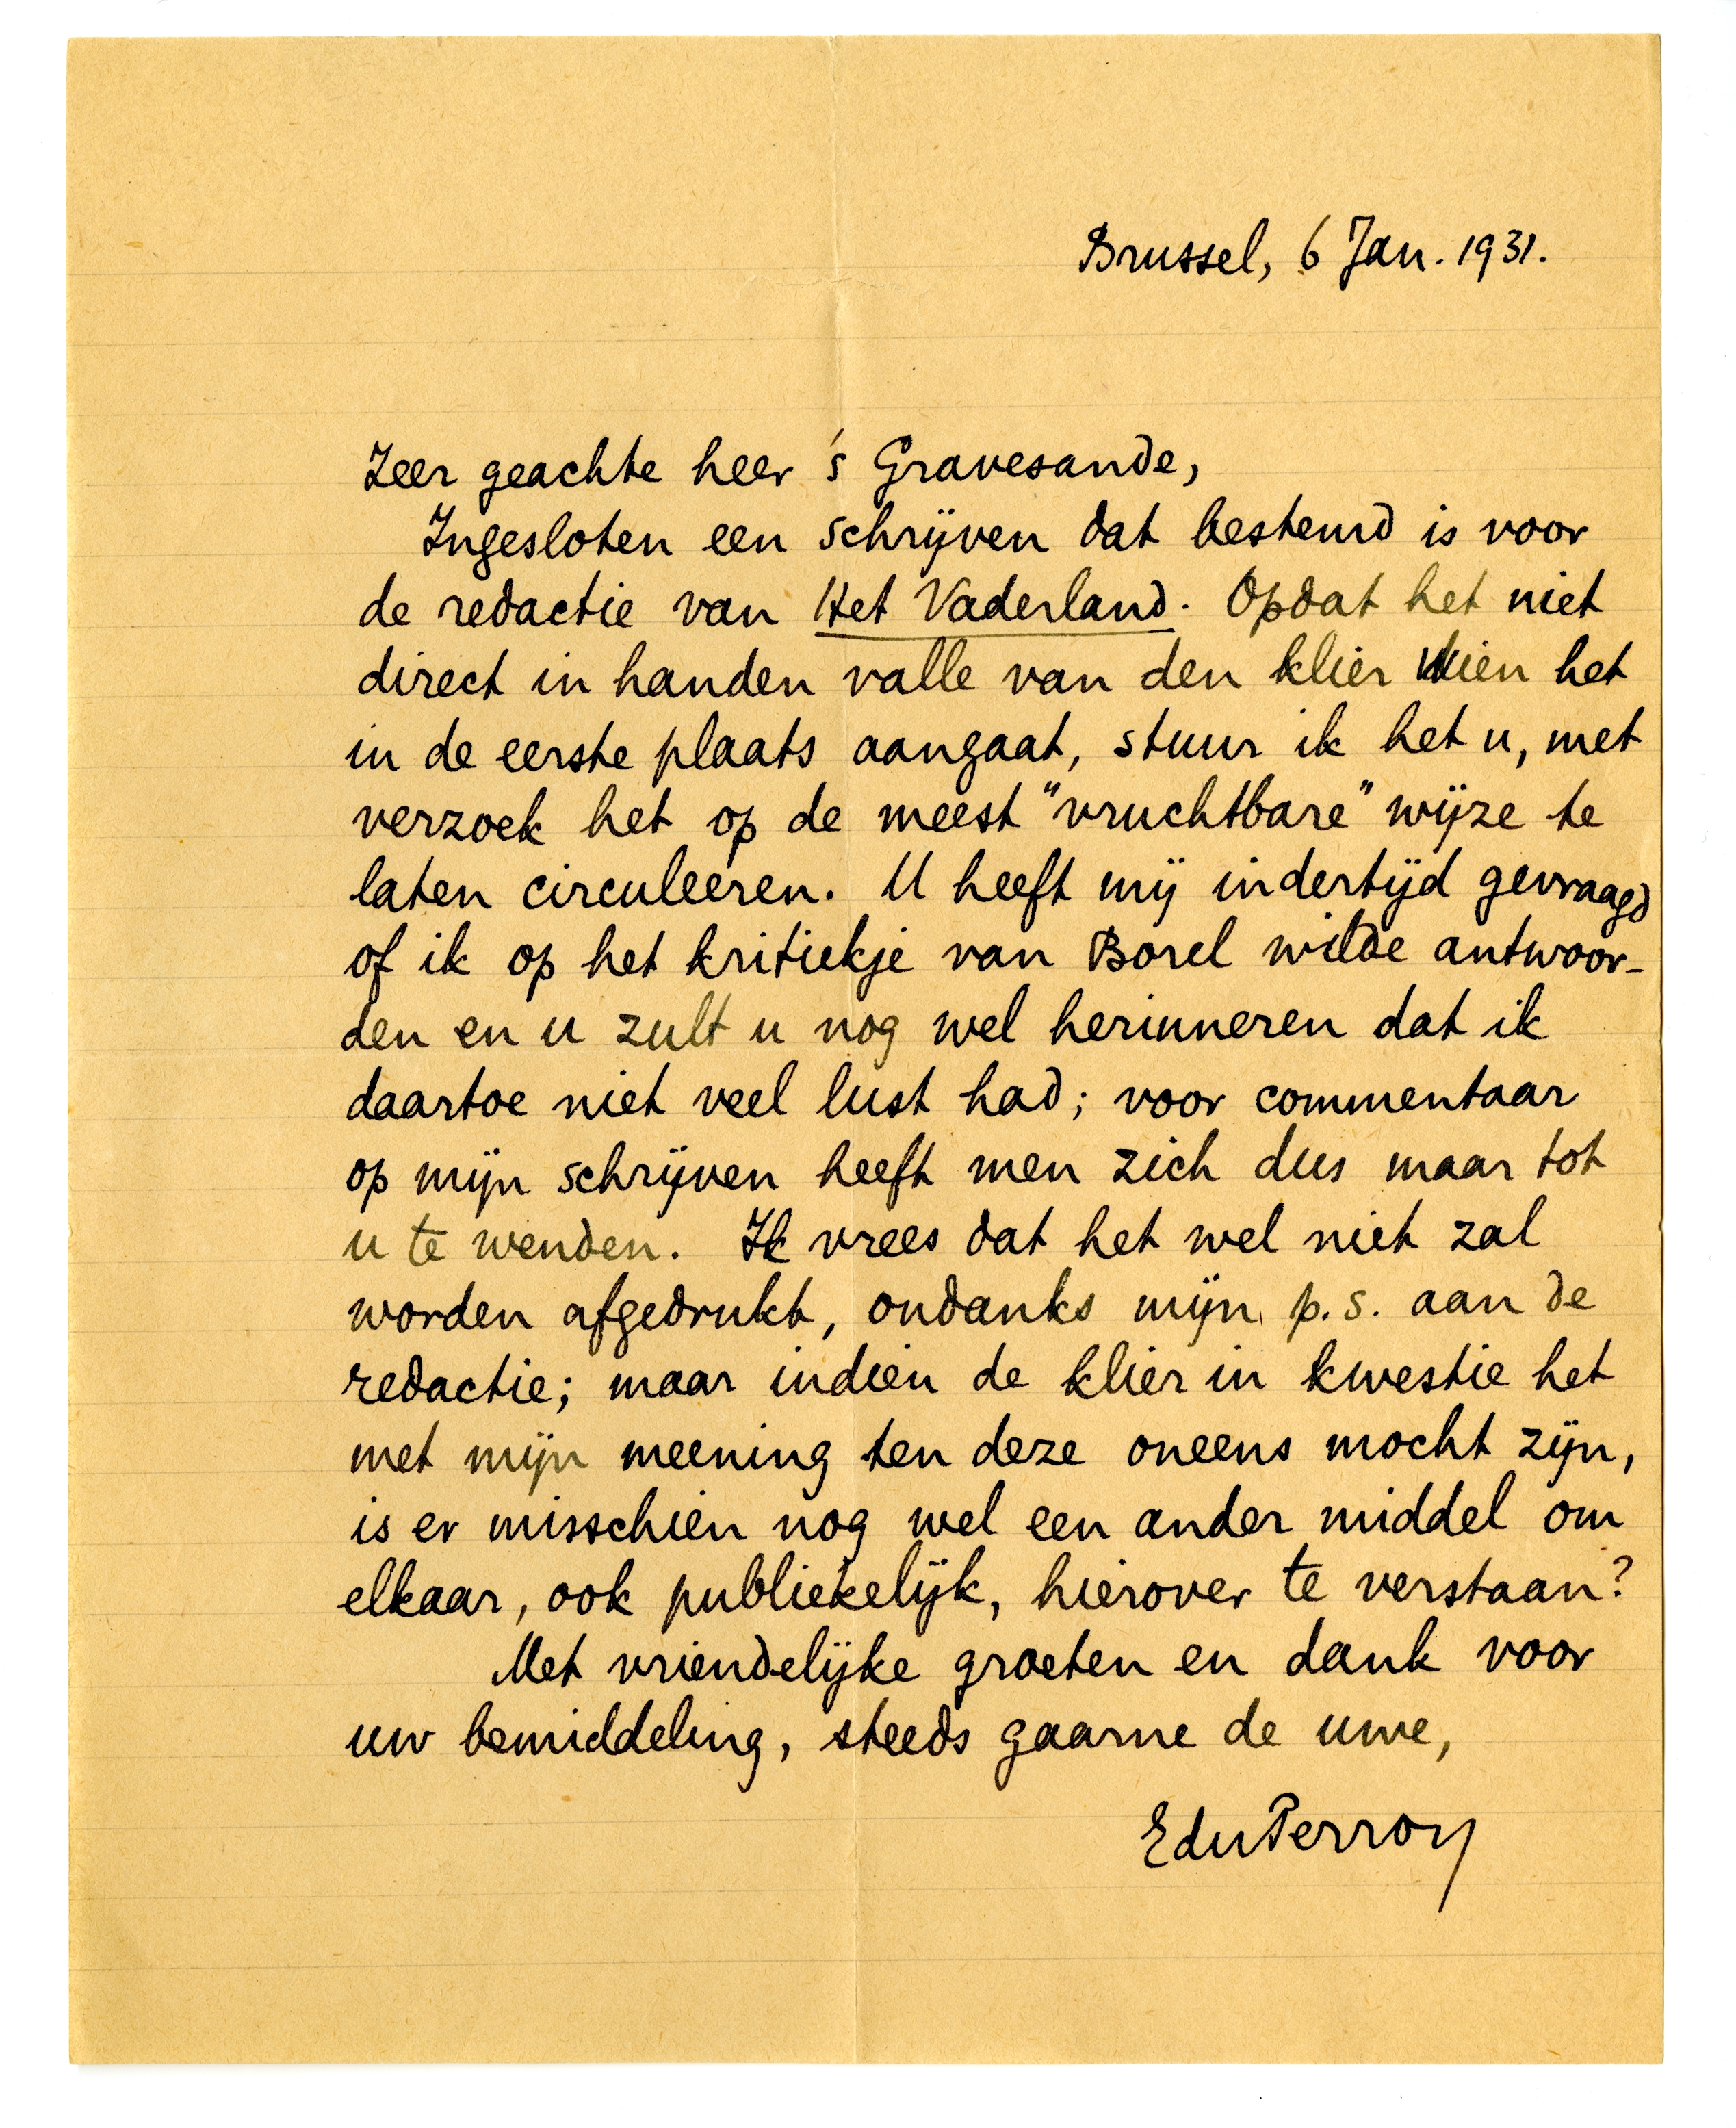 Brussel, 6 Jan. 1931.
Zeer geachte heer 's Gravesande,
Ingesloten een schrijven dat bestemd is voor
de redactie van Het Vaderland. Opdat het niet
direct in handen valle van den klier wien het
in de eerste plaats aangaat, stuur ik het u, met
verzoek het op de meest "vruchtbare" wijze te
laten circuleeren. U heeft mij indertijd gevraagd
of ik op het kritiekje van Borel wilde antwoor-
den en u zult u nog wel herinneren dat ik
daartoe niet veel lust had; voor commentaar
op mijn schrijven heeft men zich dus maar tot
u te wenden. Ik vrees dat het wel niet zal
worden afgedrukt, ondanks mijn p.s. aan de
redactie; maar indien de klier in kwestie het
met mijn meening ten deze oneens mocht zijn,
is er misschien nog wel een ander middel om
elkaar, ook publiekelijk, hierover te verstaan?
Met vriendelijke groeten en dank voor
uw bemiddeling, steeds gaarne de uwe,
EduPerron